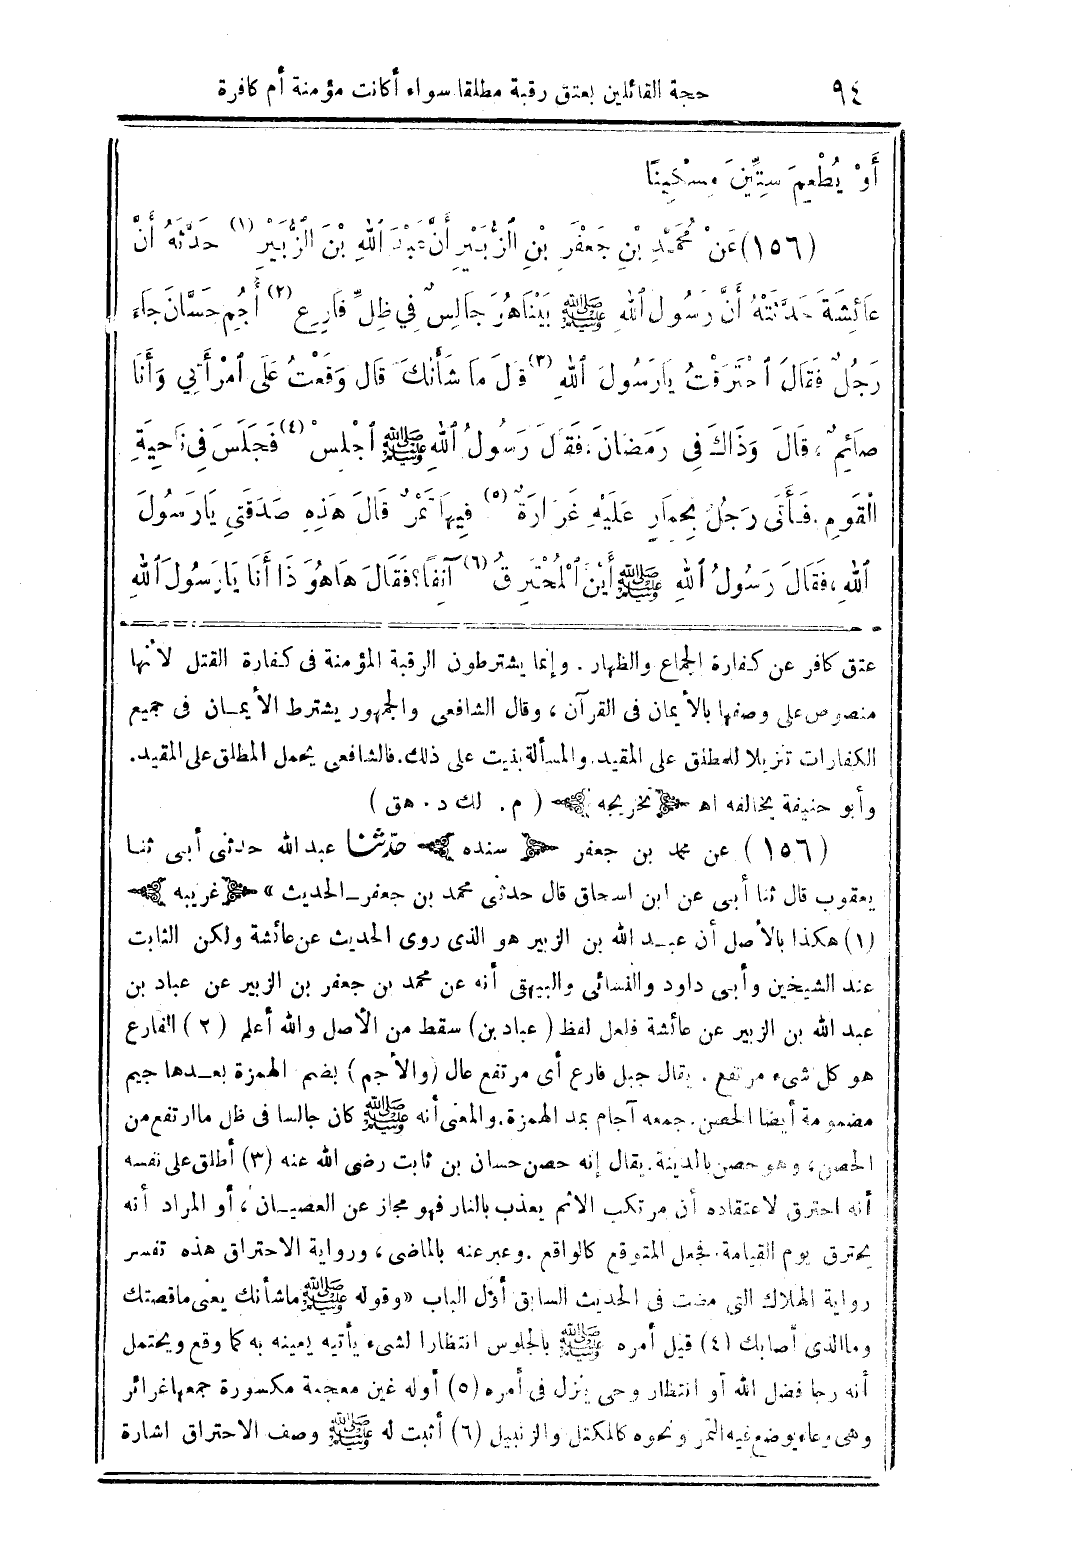 ٩٤ حجة القائلين بعتق رقبة مطلقا سواء أكانت مؤمنة أم كافرة
أَوْ يُطْعِمَ سِتِّينَ مِسْكِينًا
(١٥٦) عَنْ مُحَمَّدِ بْنِ جَعْفَرِ بْنِ الزُّبَيْرِ أَنَّ عَبْدَ اللهِ بْنَ الزُّبَيْرِ (١) حَدَّثَهُ أَنَّ
عَائِشَةَ حَدَّثَتْهُ أَنَّ رَسُولَ اللهِ ﷺ بَيْنَا هُوَ جَالِسٌ فِي ظِلِّ فَارِعِ (٢) أُجُمِ حَسَّانَ جَاءَ
رَجُلٌ فَقَالَ احْتَرَقْتُ يَا رَسُولَ اللهِ (٣) قَالَ مَا شَأْنُكَ قَالَ وَقَعْتُ عَلَى امْرَأَتِي وَأَنَا
صَائِمٌ، قَالَ وَذَاكَ فِي رَمَضَانَ، فَقَالَ رَسُولُ اللهِ ﷺ اجْلِسْ (٤) فَجَلَسَ فِي نَاحِيَةِ
الْقَوْمِ. فَأَتَى رَجُلٌ بِحِمَارٍ عَلَيْهِ غَرَارَةٌ (٥) فِيهَا تَمْرٌ قَالَ هَذِهِ صَدَقَتِي يَا رَسُولَ
اللهِ، فَقَالَ رَسُولُ اللهِ ﷺ أَيْنَ الْمُحْتَرِقُ (٦) آنِفًا؟ فَقَالَ هَا هُوَ ذَا أَنَا يَا رَسُولَ اللهِ
عتق كافر عن كفارة الجماع والظهار. وإنما يشترطون الرقبة المؤمنة فى كفارة القتل لأنها
منصوص على وصفها بالأيمان فى القرآن، وقال الشافعى والجمهور يشترط الأيمـان فى جميع
الكفارات تنزيلا للمطلق على المقيد. والمسألة بنيت على ذلك. فالشافعى يحمل المطلق على المقيد.
وأبو حنيفة يخالفه اهـ تخريجه (م. لك د. هق)
(١٥٦) عن محمد بن جعفر سنده حدّثنا عبد الله حدثنى أبى ثنـا
يعقوب قال ثنا أبى عن ابن اسحاق قال حدثنى محمد بن جعفر ـ الحديث » غريبه
(١) هكذا بالأصل أن عبـد الله بن الزبير هو الذى روى الحديث عن عائشة ولكن الثابت
عند الشيخين وأبى داود والنسائى والبيهقى أنه عن محمد بن جعفر بن الزبير عن عباد بن
عبد الله بن الزبير عن عائشة فلعل لفظ (عباد بن) سقط من الأصل والله أعلم (٢) الفارع
هو كل شىء مرتفع. يقال جبل فارع أى مرتفع عال (والأجم) بضم الهمزة بعـدها جيم
مضمومة أيضا الحصن. جمعه آجام بمد الهمزة. والمعنى أنه ﷺ كان جالسا فى ظل ما ارتفع من
الحصن، وهو حصن بالمدينة. يقال إنه حصن حسان بن ثابت رضى الله عنه (٣) أطلق على نفسه
أنه احترق لاعتقاده أن مرتكب الاثم يعذب بالنار فهو مجاز عن العصيـان، أو المراد أنه
يحترق يوم القيامة. فجعل المتوقع كالواقع. وعبر عنه بالماضى، ورواية الاحتراق هذه تفسر
رواية الهلاك التى مضت فى الحديث السابق أوّل الباب «وقوله ﷺ ما شأنك يعنى ما قصتك
وما الذى أصابك (٤) قيل أمره ﷺ بالجلوس انتظارا لشىء يأتيه يعينه به كما وقع ويحتمل
أنه رجا فضل الله أو انتظار وحى ينزل فى أمره (٥) أوله غين معجمة مكسورة جمعها غرائر
وهى وعاء يوضع فيه التمر ونحوه كالمكتل والزنبيل (٦) أثبت له ﷺ وصف الاحتراق اشارة